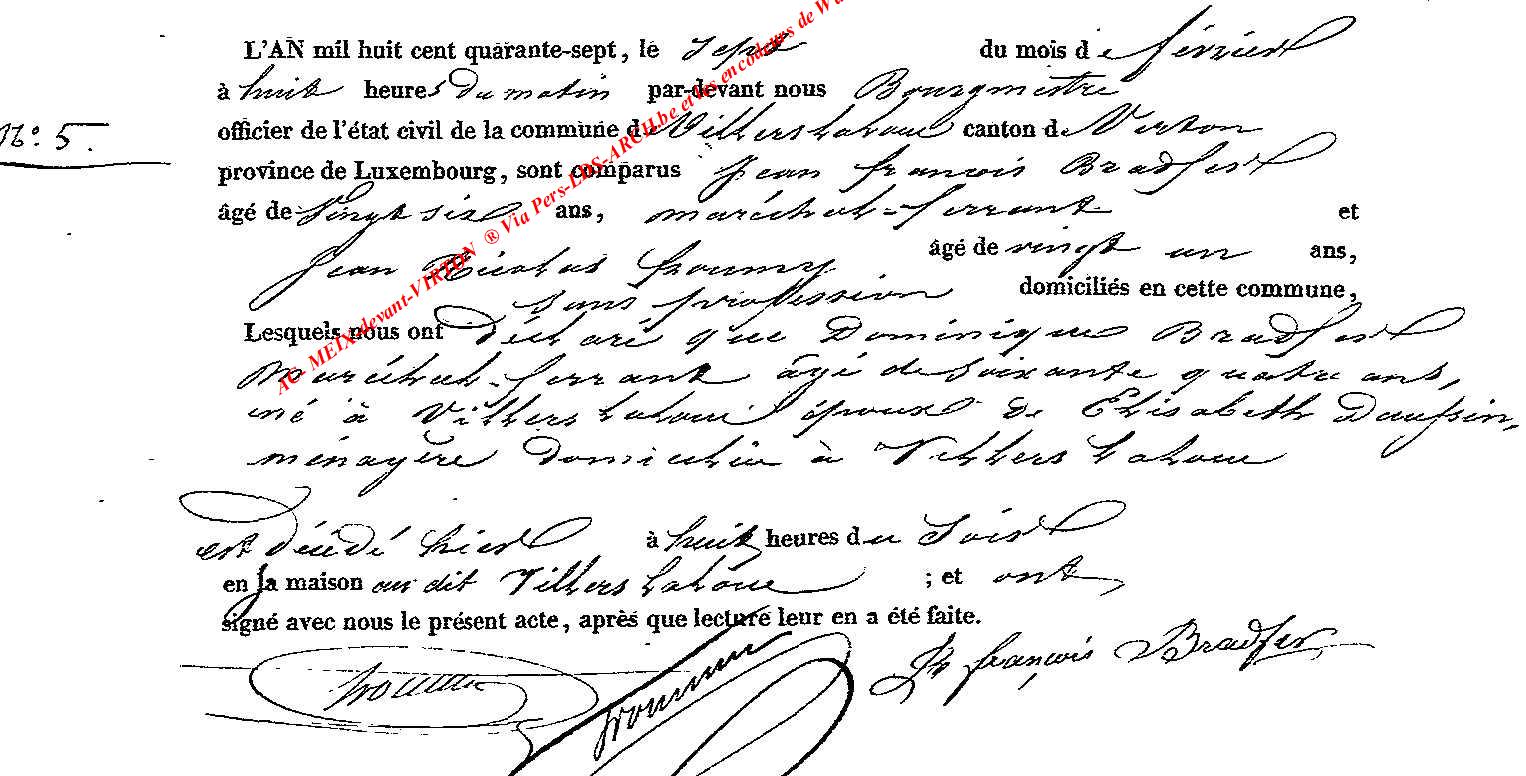 L'AN mil huit cent quarante-sept, le sept du mois de février
à huit heures du matin par-devant nous Bourgmestre
N.° 5.
officier de l'état civil de la commune de Villers laloue canton de Virton
province de Luxembourg, sont comparus Jean françois Bradfer
âgé de vingt six ans, maréchal-ferrant et
Jean Nicolas âgé de vingt un ans,
sans profession domiciliés en cette commune,
Lesquels nous ont déclaré que Dominique Bradfer
Maréchal-ferrant âgé de soixante quatre ans,
né à Villers laloue époux de Elisabeth
ménagère domiciliée à Villers laloue
est décédé hier à huit heures du soir
en la maison au dit Villers laloue ; et ont
signé avec nous le présent acte, après que lecture leur en a été faite.
françois Bradfer
AC- MEIX-devant-VIRTON ® Via Pers-LDS-ARCH.be et les encodeurs de